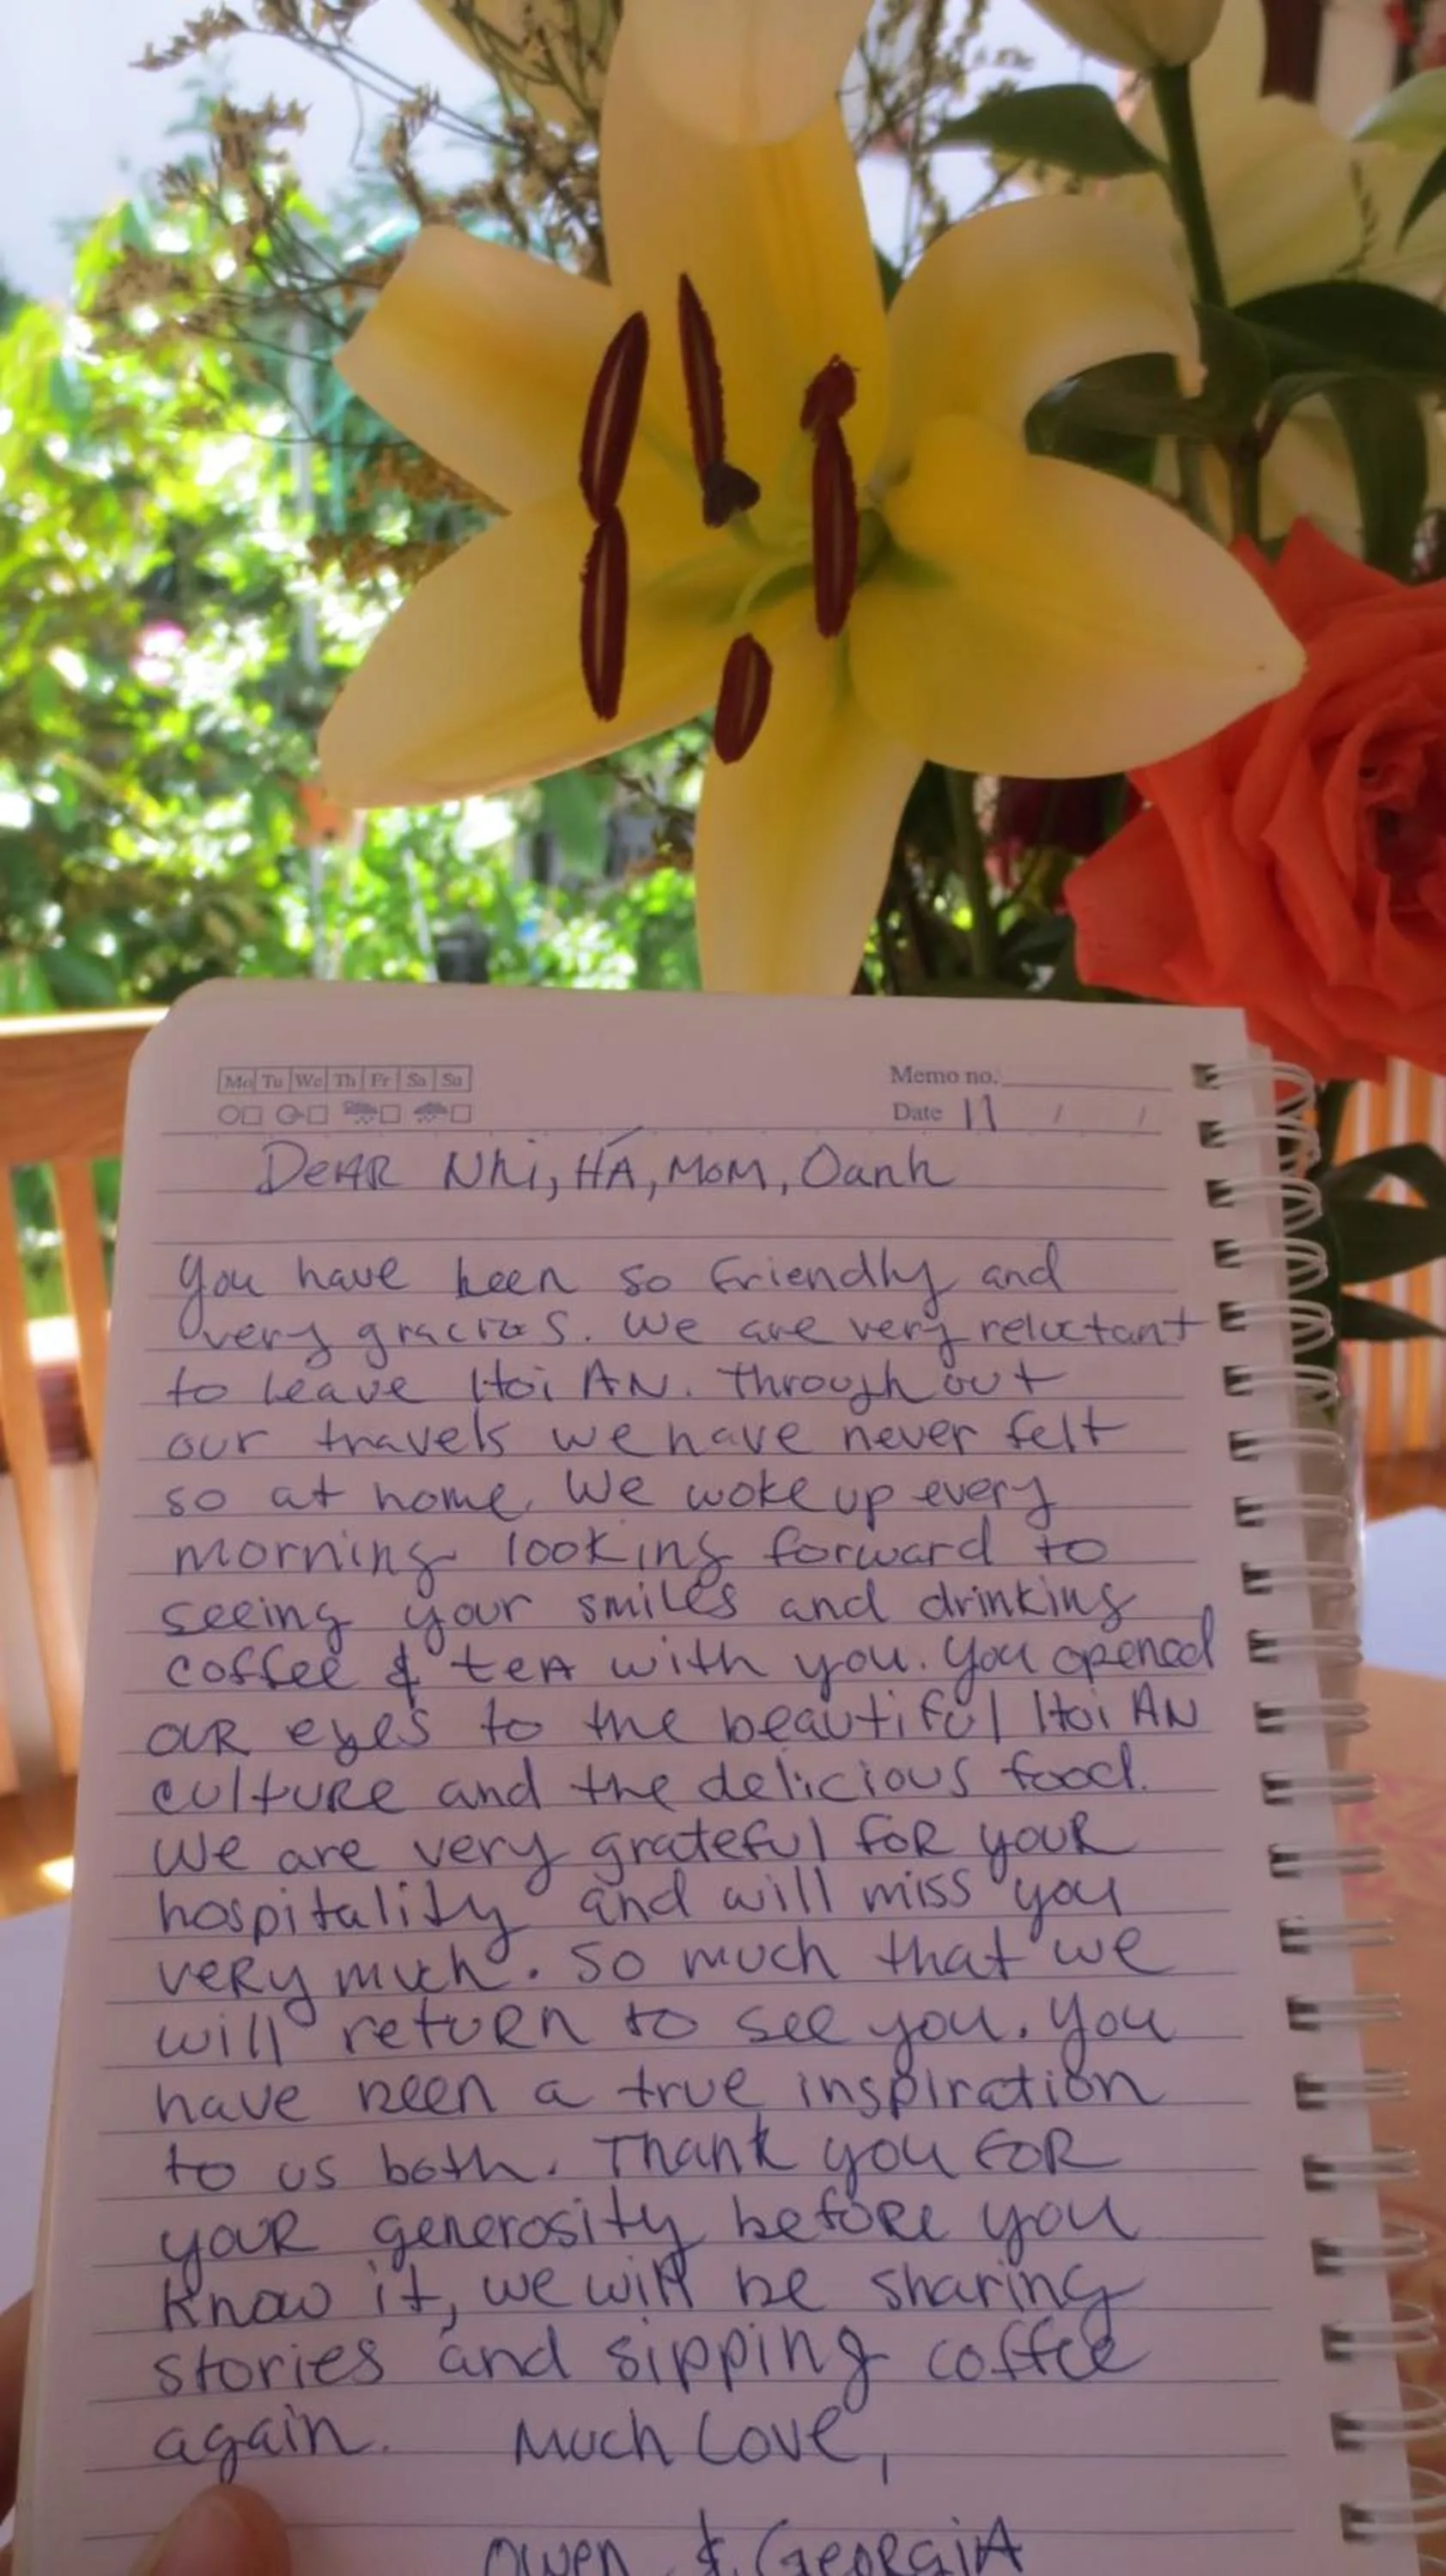 Mo Tu We Th Fr Sa Su
Memo no.
Date 11 / /
DeAR Nhi, HÁ, MoM, Oanh
You have been so friendly and
very gracious. We are very reluctant
to leave Hoi AN. Through out
our travels we have never felt
so at home. We woke up every
morning looking forward to
seeing your smiles and drinking
coffee & teA with you. You opened
ouR eyes to the beautiful Hoi AN
cultuRe and the delicious food.
We are very grateful foR youR
hospitality and will miss you
veRy much. So much that we
will retuRn to see you. You
have been a true inspiration
to us both. Thank you FoR
youR generosity before you
know it, we will be sharing
stories and sipping coffee
again. Much Love,
Owen & GeorgiA